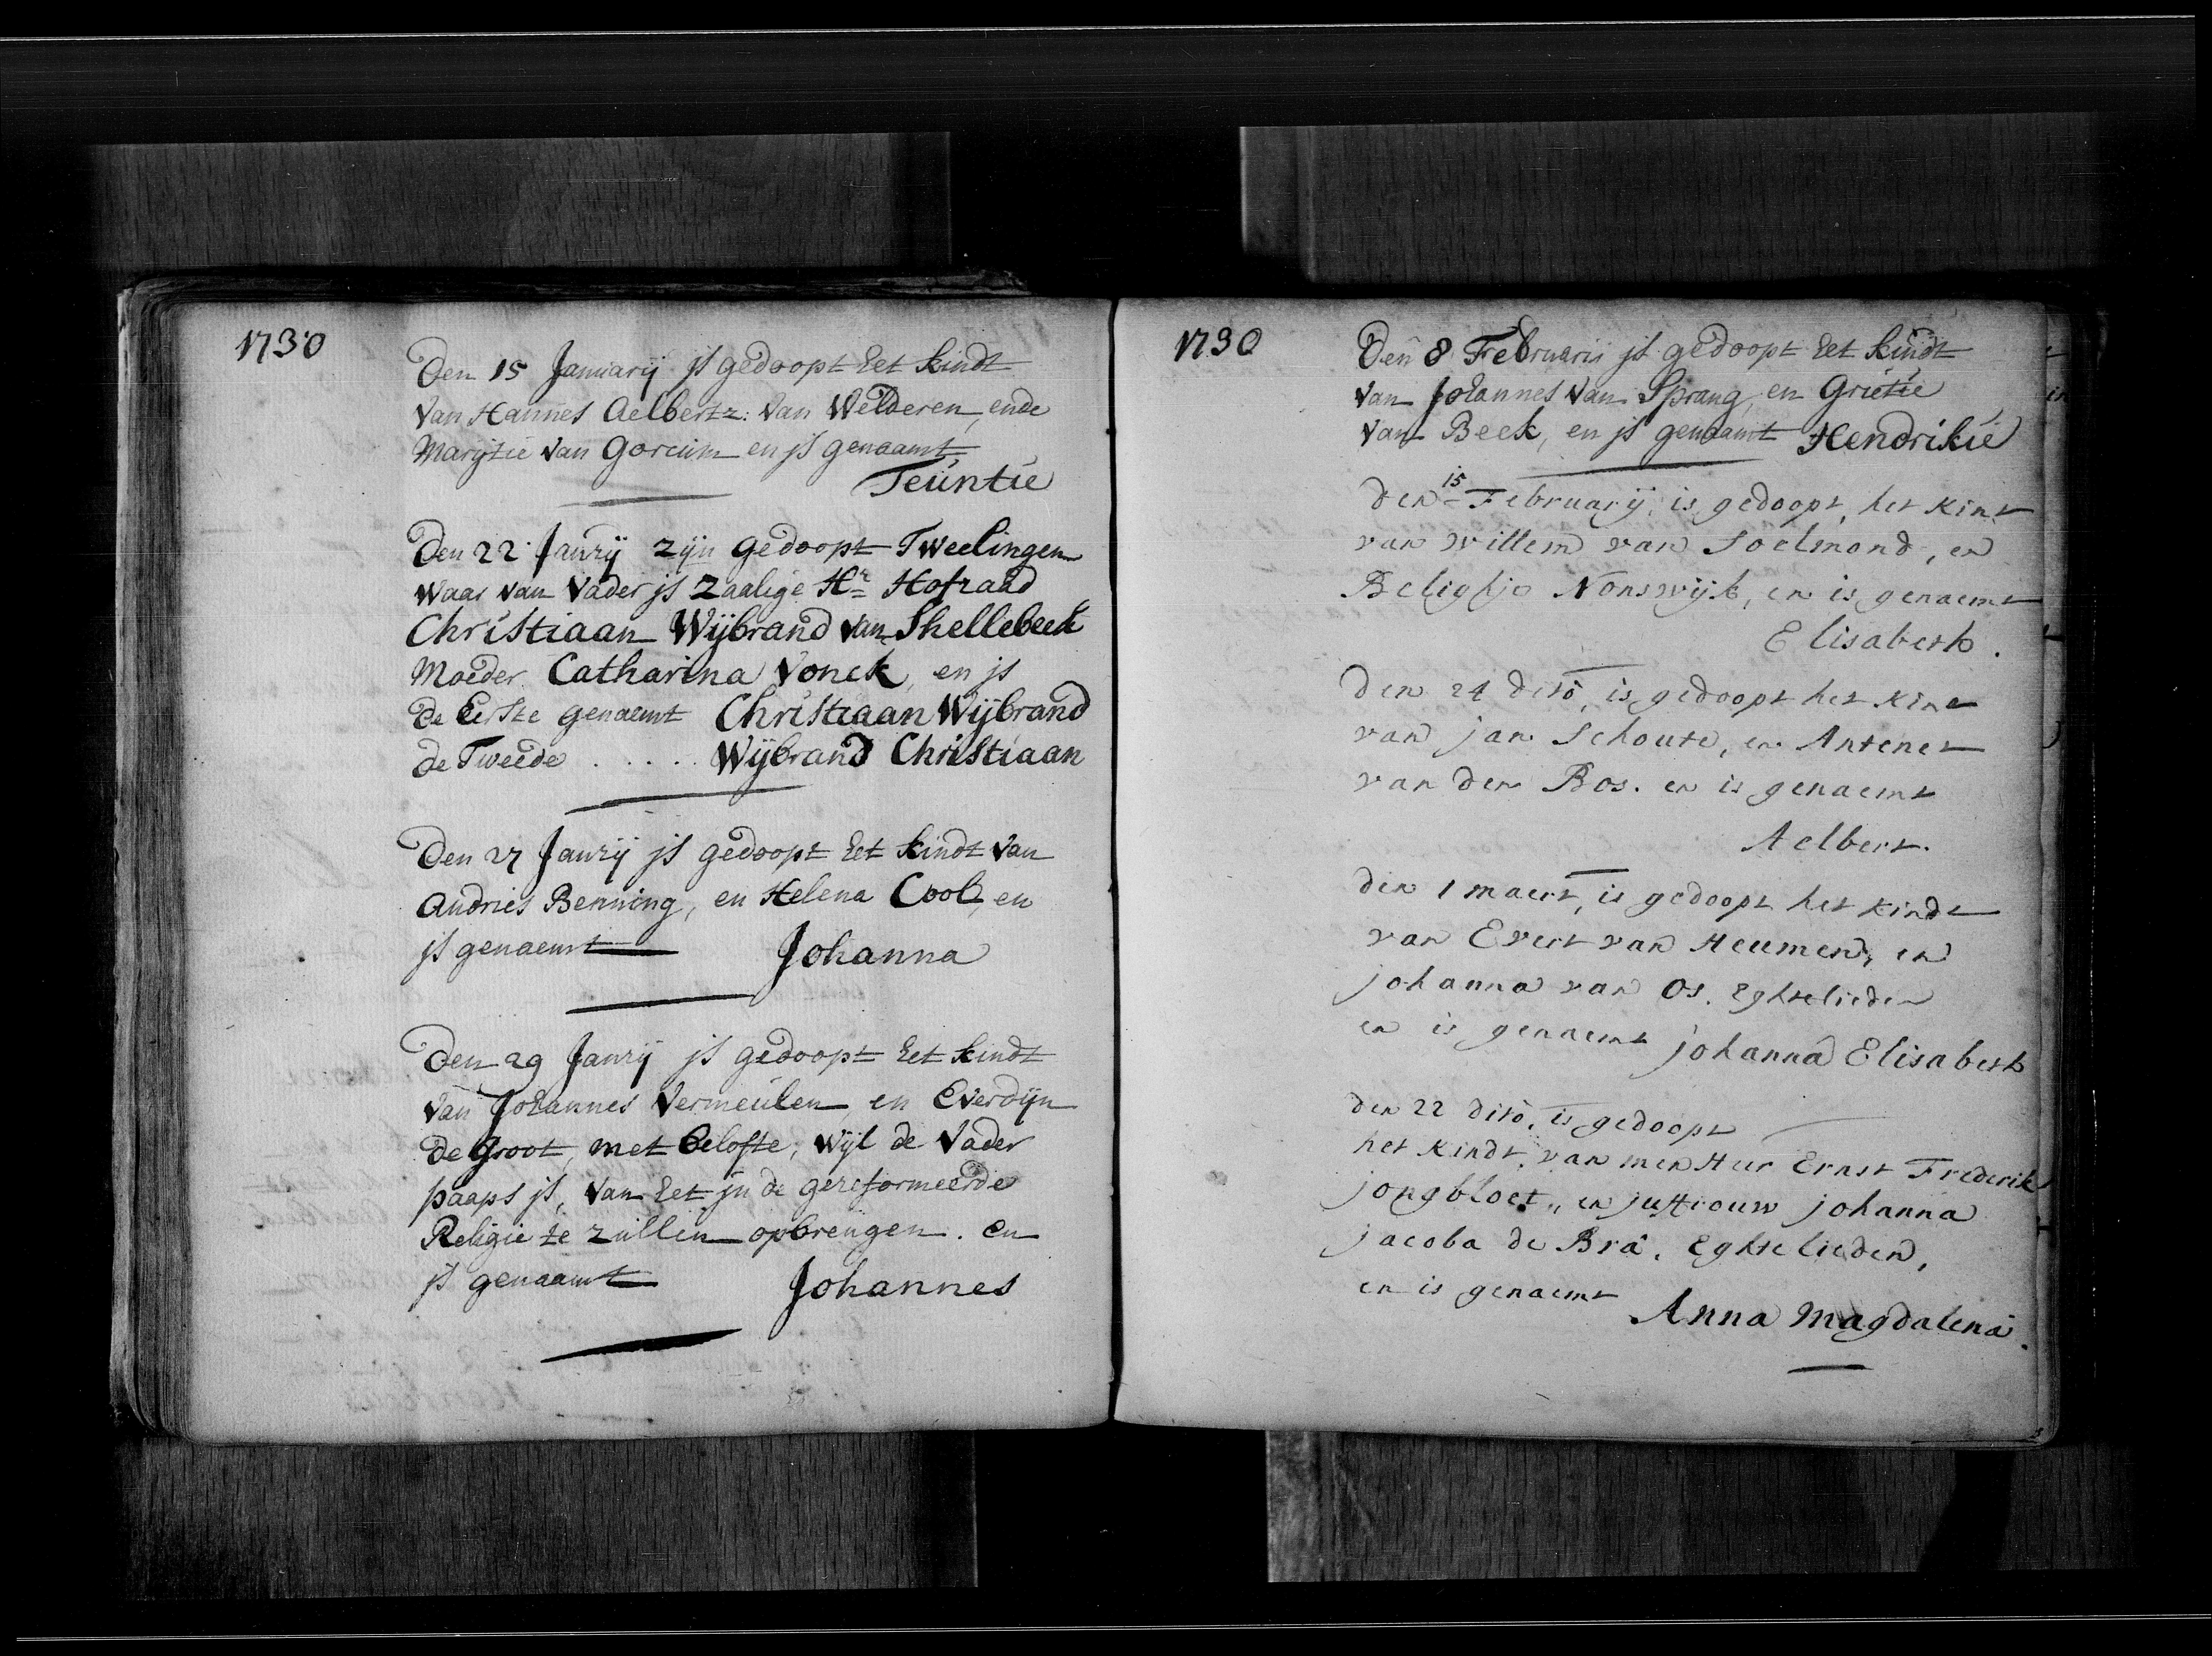 1730
Den 15 Januarij js gedoopt het kindt
Van Hannes Aelbertz: Van Welderen, ende
Marijtie Van Gorcum en js genaamt,
Teuntie
Den 22 Janrij zijn gedoopt Tweelingen
waar van Vader js Zaalige Hr Hofraad
Christiaan Wijbrand Van Shellebeek
Moeder Catharina Vonck, en js
de Eerste genaemt Christiaan Wijbrand
de Tweede ..... Wijbrand Christiaan
Den 27 Janrij js gedoopt het kindt Van
Andries Benning, en Helena Cool, en
js genaemt Johanna
Den 29 Janrij js gedoopt het kindt
Van Johannes Vermeulen en Everdijn
de Groot, met belofte, wijl de Vader
paaps js, Van het jn de gereformeerde
Religie te zullen opbrengen. en
js genaamt Johannes
1730
Den 8 Februarii js gedoopt het kindt
Van Johannes Van Sprang, en Grietie
Van Beek, en js genaamt Hendrikie
den 15 February, is gedoopt, het kint
van willem van Soelmond, en
Beligtje Nonswijk, en is genaemt
Elisabeth.
den 24 dito, is gedoopt het kint
van jan Schoute, en Antenet
van den Bos. en is genaemt
Aelbert.
den 1 maert, is gedoopt het kindt
van Evert van Heumen, en
johanna van Os. Eghtelieden
en is genaemt johanna Elisabeth
den 22 dito, is gedoopt
het kindt, van men Heer Ernst Frederik
jongbloet, en juffrouw johanna
jacoba de Bra. Eghtelieden,
en is genaemt Anna Magdalena.